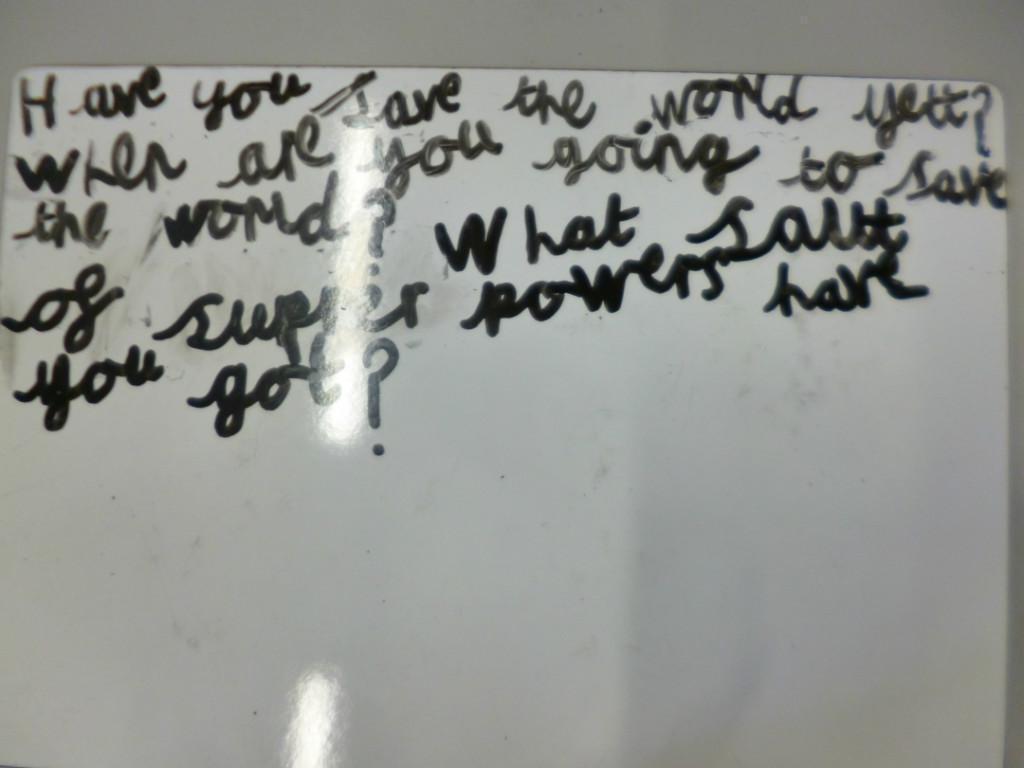 Have you save the world yett?
when are you going to save
the world? What sault
of supper powers have
you got?